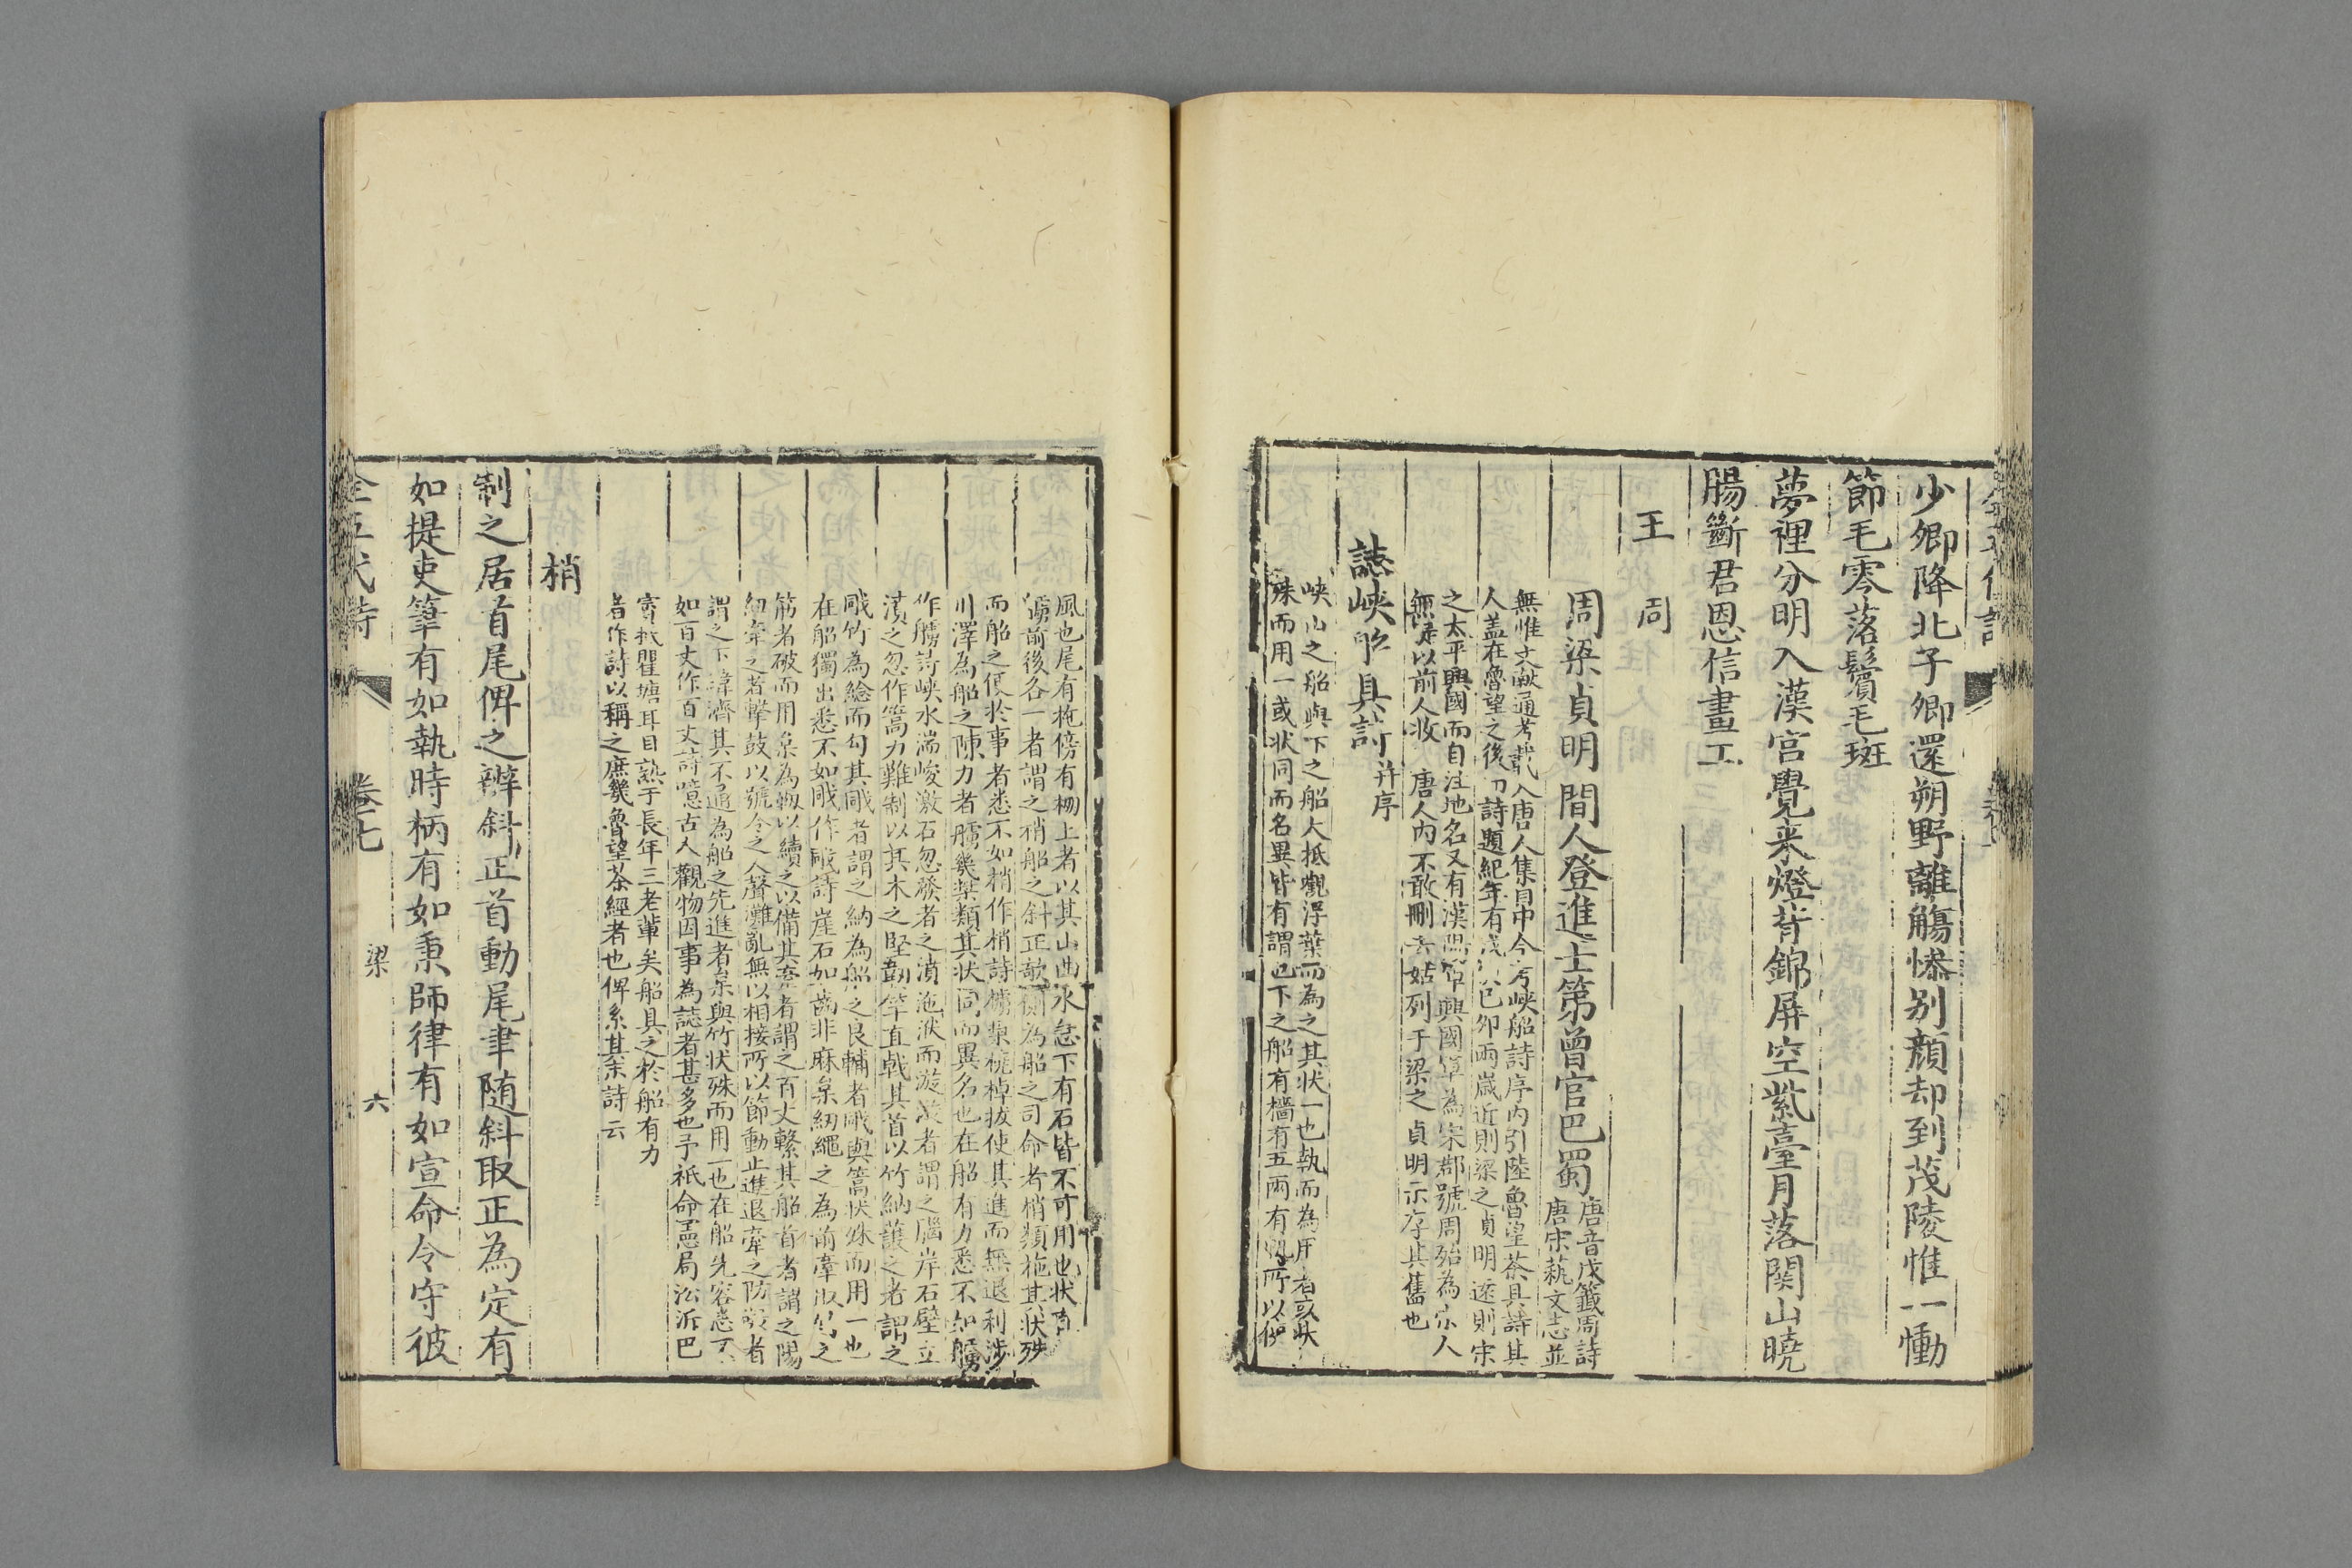 少卿降北子卿還朔野離觴慘别顔却到茂陵惟一慟
節毛零落鬢毛斑
夢裡分明入漢宫覺来燈背錦屏空紫臺月落関山曉
腸斷君恩信畫工
王周
周梁貞明間人登進士第曾官巴蜀
唐音戊籤周詩
唐宋藝文志並
無惟文献通考載入唐人集目中今考峽船詩序内引陸魯望茶具詩其
人盖在魯望之後 詩題紀年有 己卯兩歳近則梁之貞明遠則宋
之太平興國而自注地名又有漢陽 興國軍為宋郡號周殆為宋人
無 以前人收 唐人内不敢刪去姑列于梁之貞明示存其舊也
誌峽船具詩并序
峽山之船與下之船大抵觀浮葉而為之其状一也執而為用者或状
殊而用一或状同而名異皆有謂也下之船有檣有五兩有帆所以
風也尾有柂傍有櫓上者以其山曲水急下有石皆不可用也状直
如 前後各一者謂之梢船之斜正欹側為船之司命者梢類柂其状殊
而船之便於事者悉不如梢作梢詩 槳橈棹拔使其進而無退利涉
川澤為船之陳力者艣幾槳類其状同而異名也在船有力悉不如艣
作艣詩峽水湍峻激石忽發者之濆沲洑而漩 者謂之腦岸石壁立
濆之忽作篙力難制以其木之堅韌竿直戟其首以竹納護之者謂之
戙竹為䋎而勾其戙者謂之納為船之良輔者戙與篙状殊而用一也
在船獨出悉不如戙作戙詩崖石如齒非麻枲紉繩之為前牽取竹之
筋者破而用枲為 以續之以備其牽者謂之百丈繫其船首者謂之陽
紐牽之者擊鼓以號令之人聲灘亂無以相接所以節動止進退牽之防 者
謂之下緯濟其不通為船之先進者枲與竹状殊而用一也在船先容悉不
如百丈作百丈詩噫古人觀物因事為誌者甚多也予祇命憲局沿泝巴
賨抵瞿塘耳目熟于長年三老輩矣船具之於船有力
者作詩以稱之庶幾魯望茶經者也俾系其末詩云
梢
制之居首尾俾之辨斜正首動尾聿随斜取正為定有
如提吏筆有如執時柄有如秉師律有如宣命令守彼
全五代詩 卷七 梁 六